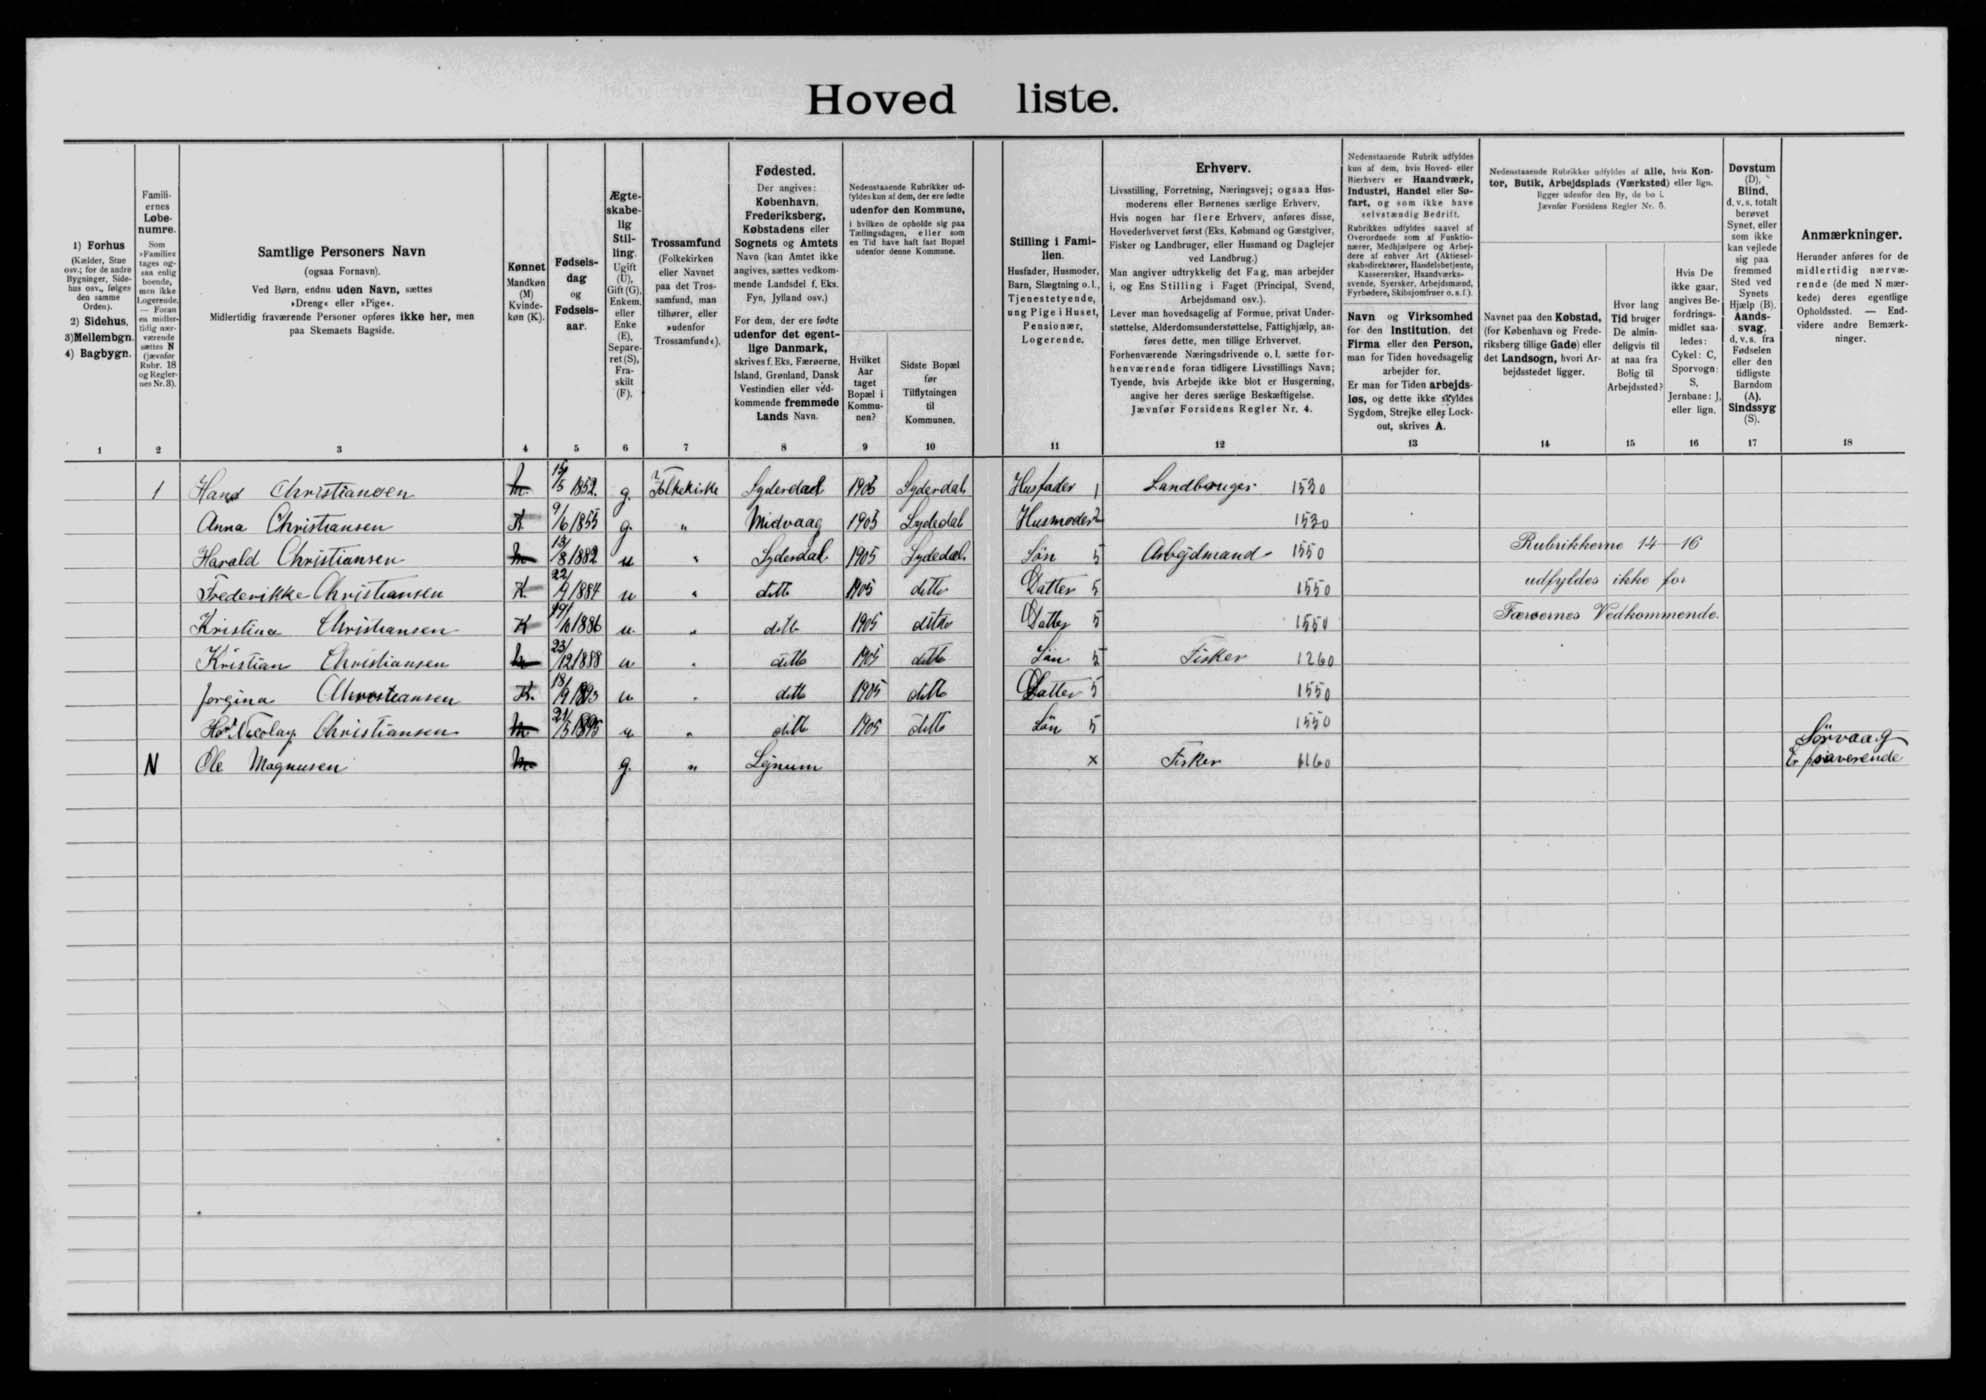 Hoved liste.
1) Forhus
(Kælder, Stue
osv.; for de andre
Bygninger, Side-
hus osv., følges
den samme
Orden).
2) Sidehus,
3)Mellembgn.
4) Bagbygn.
1
Famili-
ernes
Løbe-
numre.
Som
»Familie«
tages og-
saa enlig
boende,
men ikke
Logerende.
— Foran
en midler-
tidig nær-
værende
sættes N
(jævnfør
Rubr. 18
og Regler-
nes Nr. 3).
2
Samtlige Personers Navn
(ogsaa Fornavn).
Ved Børn, endnu uden Navn, sættes
»Dreng« eller »Pige«.
Midlertidig fraværende Personer opføres ikke her, men
paa Skemaets Bagside.
3
Kønnet
Mandkøn
(M)
Kvinde-
køn (K).
4
Fødsels-
dag
og
Fødsels-
aar.
5
Ægte-
skabe-
lig
Stil-
ling.
Ugift
(U),
Gift (G),
Enkem.
eller
Enke
(E),
Separe-
ret (S),
Fra-
skilt
(F).
6
Trossamfund
(Folkekirken
eller Navnet
paa det Tros-
samfund, man
tilhører, eller
»udenfor
Trossamfund«).
7
Fødested.
Der angives:
København,
Frederiksberg,
Købstadens eller
Sognets og Amtets
Navn (kan Amtet ikke
angives, sættes vedkom-
mende Landsdel f. Eks.
Fyn, Jylland osv.)
For dem, der ere fødte
udenfor det egent-
lige Danmark,
skrives f. Eks. Færøerne,
Island, Grønland, Dansk
Vestindien eller ved-
kommende fremmede
Lands Navn.
8
Nedenstaaende Rubrikker ud-
fyldes kun af dem, der ere fødte
udenfor den Kommune,
i hvilken de opholde sig paa
Tællingsdagen, eller som
en Tid have haft fast Bopæl
udenfor denne Kommune.
Hvilket
Aar
taget
Bopæl i
Kommu-
nen?
9
Sidste Bopæl
før
Tilflytningen
til
Kommunen.
10
Stilling i Fami-
lien.
Husfader, Husmoder,
Barn, Slægtning o. l.,
Tjenestetyende,
ung Pige i Huset,
Pensionær,
Logerende.
11
Erhverv.
Livsstilling, Forretning, Næringsvej; ogsaa Hus-
moderens eller Børnenes særlige Erhverv.
Hvis nogen har flere Erhverv, anføres disse,
Hovederhvervet først (Eks. Købmand og Gæstgiver,
Fisker og Landbruger, eller Husmand og Daglejer
ved Landbrug.)
Man angiver udtrykkelig det Fag, man arbejder
i, og Ens Stilling i Faget (Principal, Svend,
Arbejdsmand osv.).
Lever man hovedsagelig af Formue, privat Under-
støttelse, Alderdomsunderstøttelse, Fattighjælp, an-
føres dette, men tillige Erhvervet.
Forhenværende Næringsdrivende o. l. sætte for-
henværende foran tidligere Livsstillings Navn;
Tyende, hvis Arbejde ikke blot er Husgerning,
angive her deres særlige Beskæftigelse.
Jævnfør Forsidens Regler Nr. 4.
12
Nedenstaaende Rubrik udfyldes
kun af dem, hvis Hoved- eller
Bierhverv er Haandværk,
Industri, Handel eller Sø-
fart, og som ikke have
selvstændig Bedrift.
Rubrikken udfyldes saavel af
Overordnede som af Funktio-
nærer, Medhjælpere og Arbej-
dere af enhver Art (Aktiesel-
skabsdirektører, Handelsbetjente,
Kasserersker, Haandværks-
svende, Syersker, Arbejdsmænd,
Fyrbødere, Skibsjomfruer o. s. f.).
Navn og Virksomhed
for den Institution, det
Firma eller den Person,
man for Tiden hovedsagelig
arbejder for.
Er man for Tiden arbejds-
løs, og dette ikke skyldes
Sygdom, Strejke eller Lock-
out, skrives A.
13
Nedenstaaende Rubrikker udfyldes af alle, hvis Kon-
tor, Butik, Arbejdsplads (Værksted) eller lign.
ligger udenfor den By, de bo i.
Jævnfør Forsidens Regler Nr. 5.
Navnet paa den Købstad,
(for København og Frede-
riksberg tillige Gade) eller
det Landsogn, hvori Ar-
bejdsstedet ligger.
14
Hvor lang
Tid bruger
De almin-
deligvis til
at naa fra
Bolig til
Arbejdssted?
15
Hvis De
ikke gaar,
angives Be-
fordrings-
midlet saa-
ledes:
Cykel: C,
Sporvogn:
S,
Jernbane: J,
eller lign.
16
Døvstum
(D),
Blind,
d. v. s. totalt
berøvet
Synet, eller
som ikke
kan vejlede
sig paa
fremmed
Sted ved
Synets
Hjælp (B).
Aands-
svag,
d. v. s. fra
Fødselen
eller den
tidligste
Barndom
(A).
Sindssyg
(S).
17
Anmærkninger.
Herunder anføres for de
midlertidig nærvæ-
rende (de med N mær-
kede) deres egentlige
Opholdssted. — End-
videre andre Bemærk-
ninger.
18
1 Hans Christiansen M. 15/5 1852 g. Folkekirke Syderdal 1905 Syderdal Husfader 1 Landbruger 1530
Anna Christiansen K 9/6 1855 g. " Midvaag 1905 Sydedal Husmoder 2 1530
Harald Christiansen M 13/8 1882 u " Syderdal 1905 Sydedal Søn 5 Arbejdmand 1550 Rubrikkerne 14-16
Frederikke Christiansen K. 22/9 1884 u " ditto 1905 ditto Datter 5 1550 udfyldes ikke for
Kristina Christiansen K 1886 u. " ditto 1905 ditto Datter 5 1550 Færøernes Vedkommende.
Kristian Christiansen M 23/12 1888 u " ditto 1905 ditto Søn 5 Fisker 1260
Jorgina Christiansen K. 18/9 1893 u " ditto 1905 ditto Datter 5 1550
Nicolay Christiansen M. 21/5 1895 u " ditto 1905 ditto Søn 5 1550
Sörvaag
N Ole Magnusen M g. " Lejnum x Fisker 1160 Er fraværende